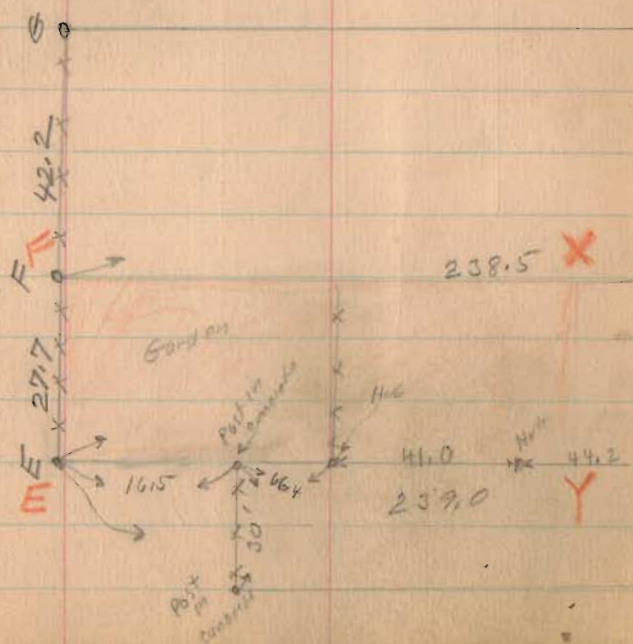 G
42.2
F
F
238.5
X
Garden
27.7
Post in
concrete
Hub
E
E
16.5
66.4
41.0
Hub
44.2
239.0
Y
30'
Post
in
concrete